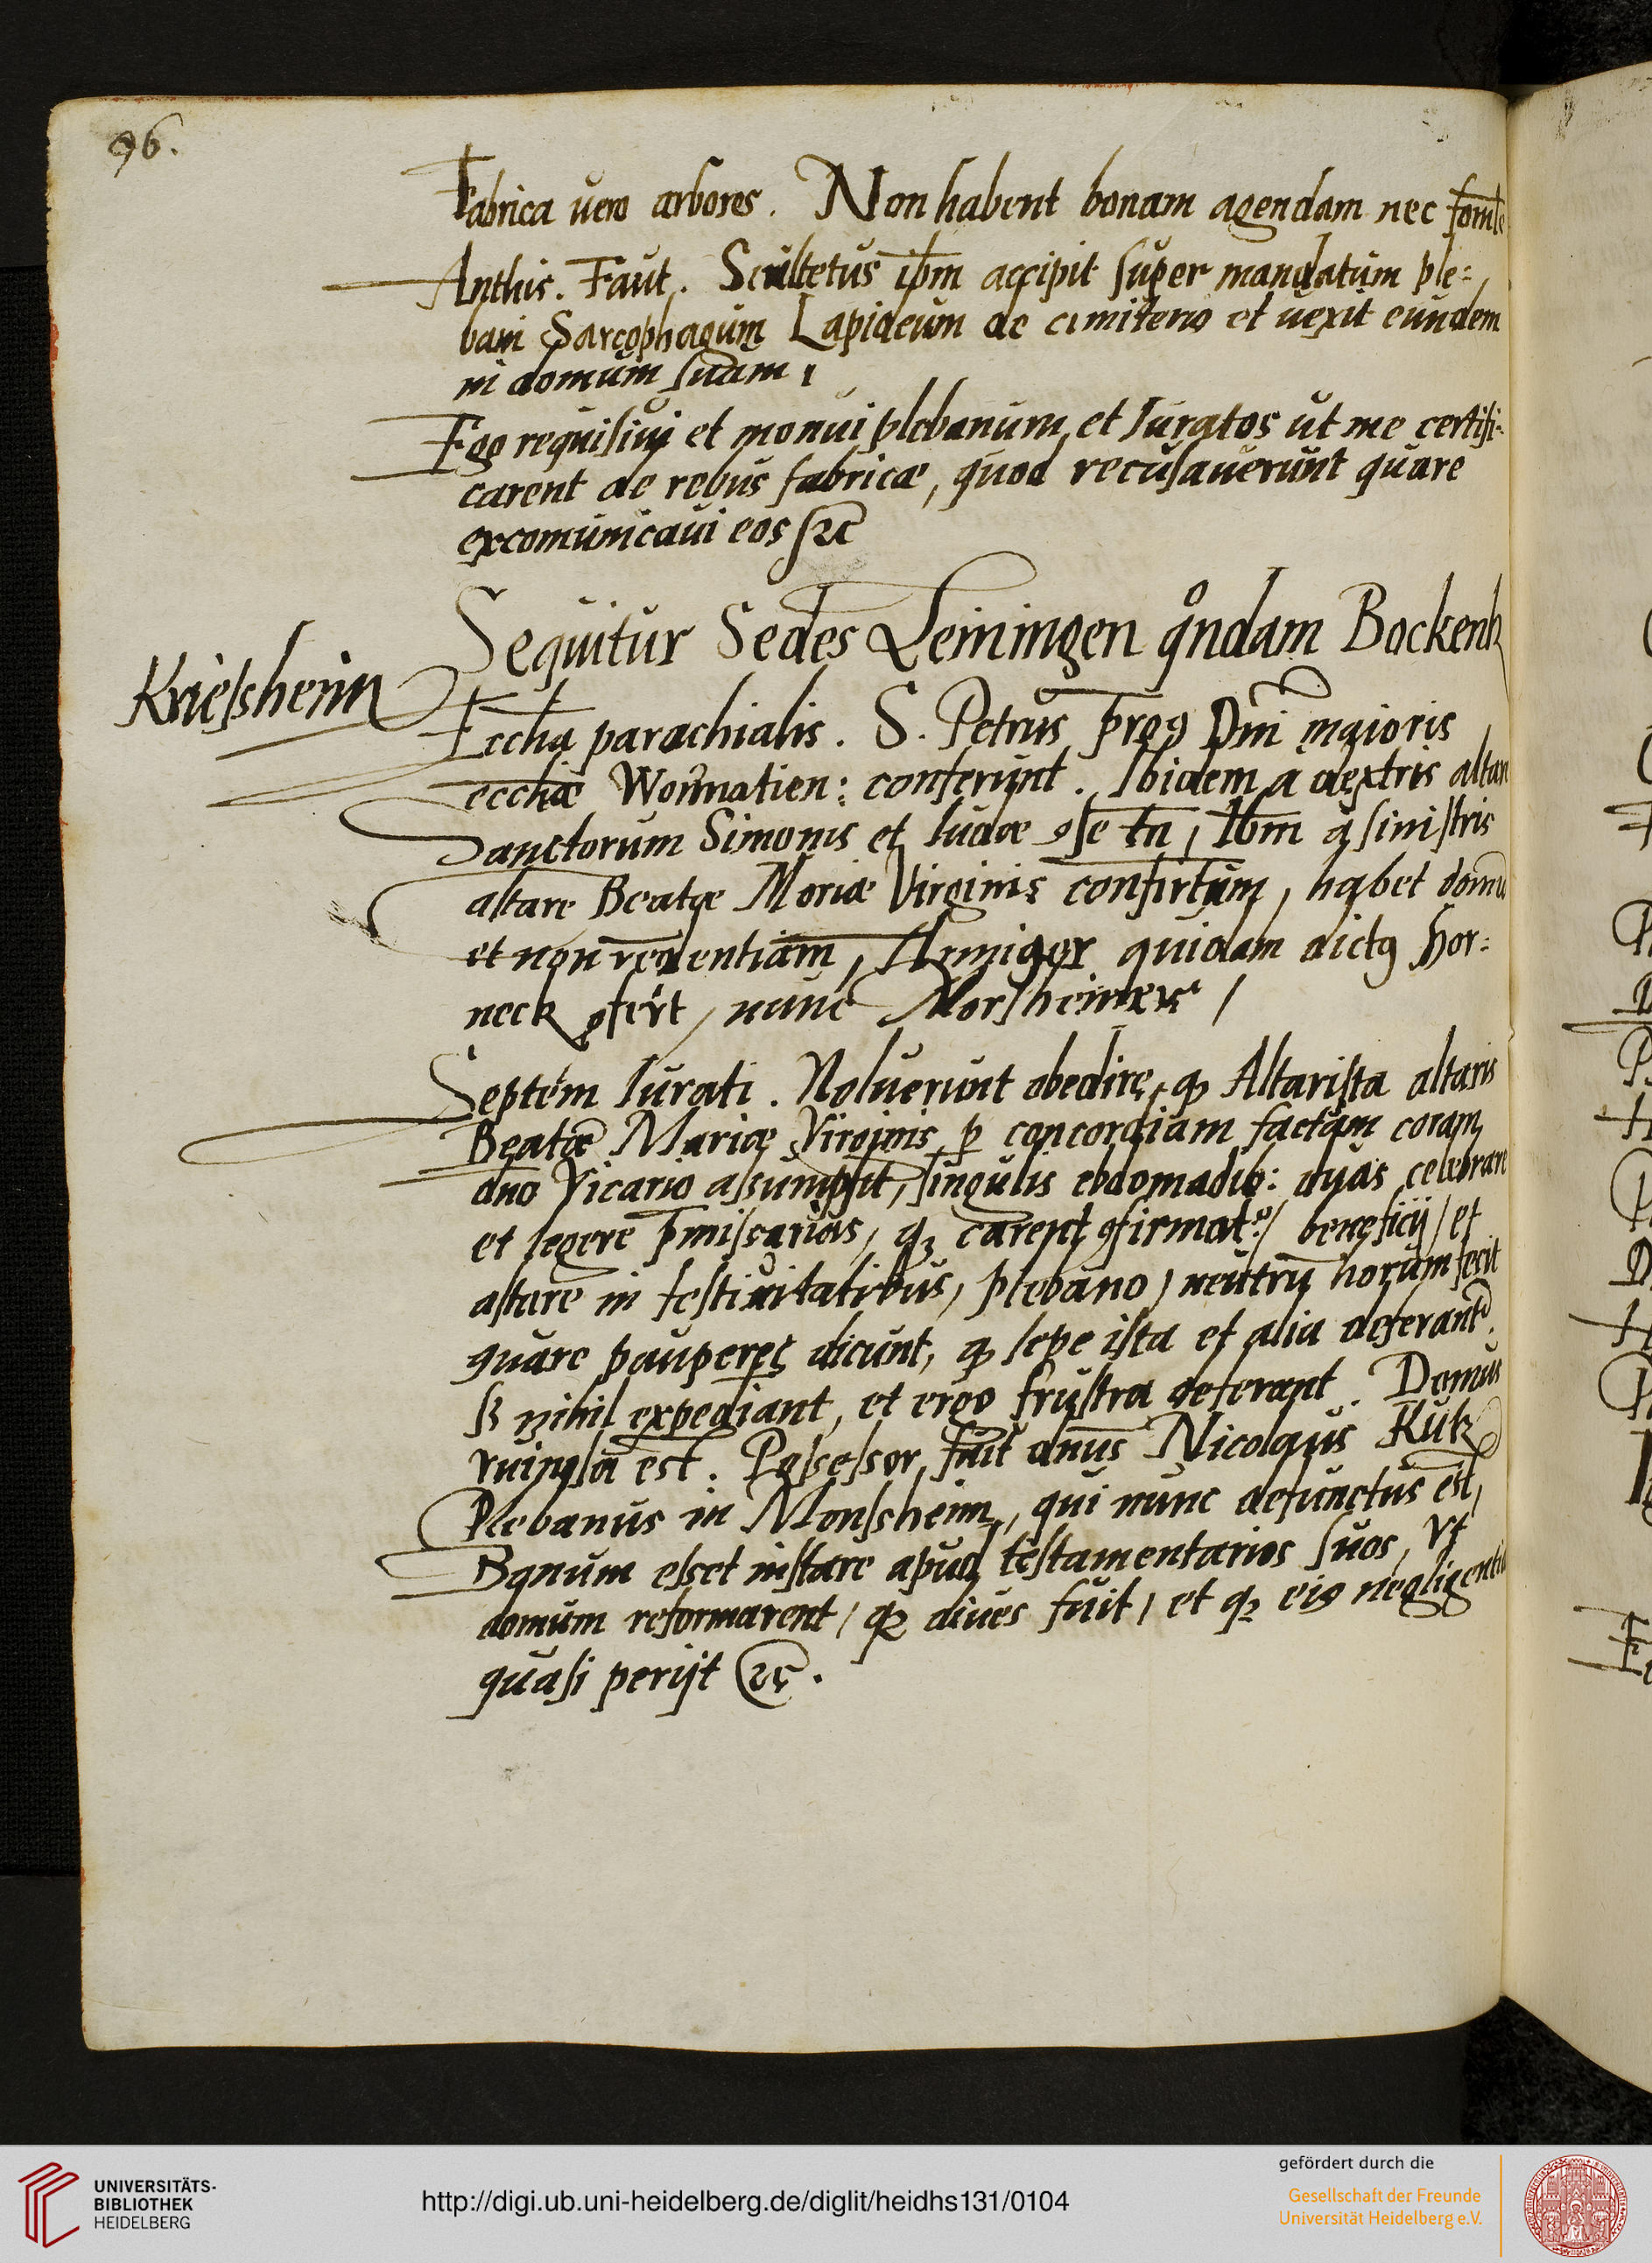 96.
Fabrica vero arbores. Non habent bonam agendam nec fontē
Anthis. Faut. Scultetus ibm accipit super mandatum ple:
bani Sarcophagum Lapideum de cimiterio et vexit eundem
in domum suam.
Ego requisivi et monui plebanum et Iuratos ut me certifi-
carent de rebus fabricæ, quod recusaverunt quare
excomunicavi eos
Sequitur Sedes Leiningen qondam Bockenh
Krieſsheim
Ecclia parachialis. S. Petrus dni maioris
eccliæ Wormatien: conferunt. Ibidem a dextris altare
Sanctorum Simonis et Iudæ Ibm a sinistris
altare Beatæ Mariæ Virginis confirtum, habet domū
et non Armiger quidam dictꝰ Hor:
neck ꝯfert, nunc Morsheimer /
Septem Iurati. Noluerunt obedire, ꝙ Altarista altaris
Beatæ Mariæ Virginis ꝑ concordiam factam coram
dno Vicario assumpsit, singulis ebdomadib: duas celebrare
et legere p̄missarias, qꝫ carent ꝯfirmatōe / beneficij / et
astare in festivitatibus, plebano, neutrū horum fecit
quare pauperes dicunt, ꝙ sepe ista et alia deferant
ß nihil expediant, et ergo frustra deferant. Domus
ruinosa est. Possessor fuit dnus Nicolaus Kulz
Plebanus in Monsheim, qui nunc defunctus est,
Bonum esset instare apud testamentarios suos, Vt
domum reformarent / qꝫ dives fuit / et qꝫ eiꝰ negligentia
quasi perijt ꝛc.
UNIVERSITÄTS-
BIBLIOTHEK
HEIDELBERG
http://digi.ub.uni-heidelberg.de/diglit/heidhs131/0104
gefördert durch die
Gesellschaft der Freunde
Universität Heidelberg e.V.